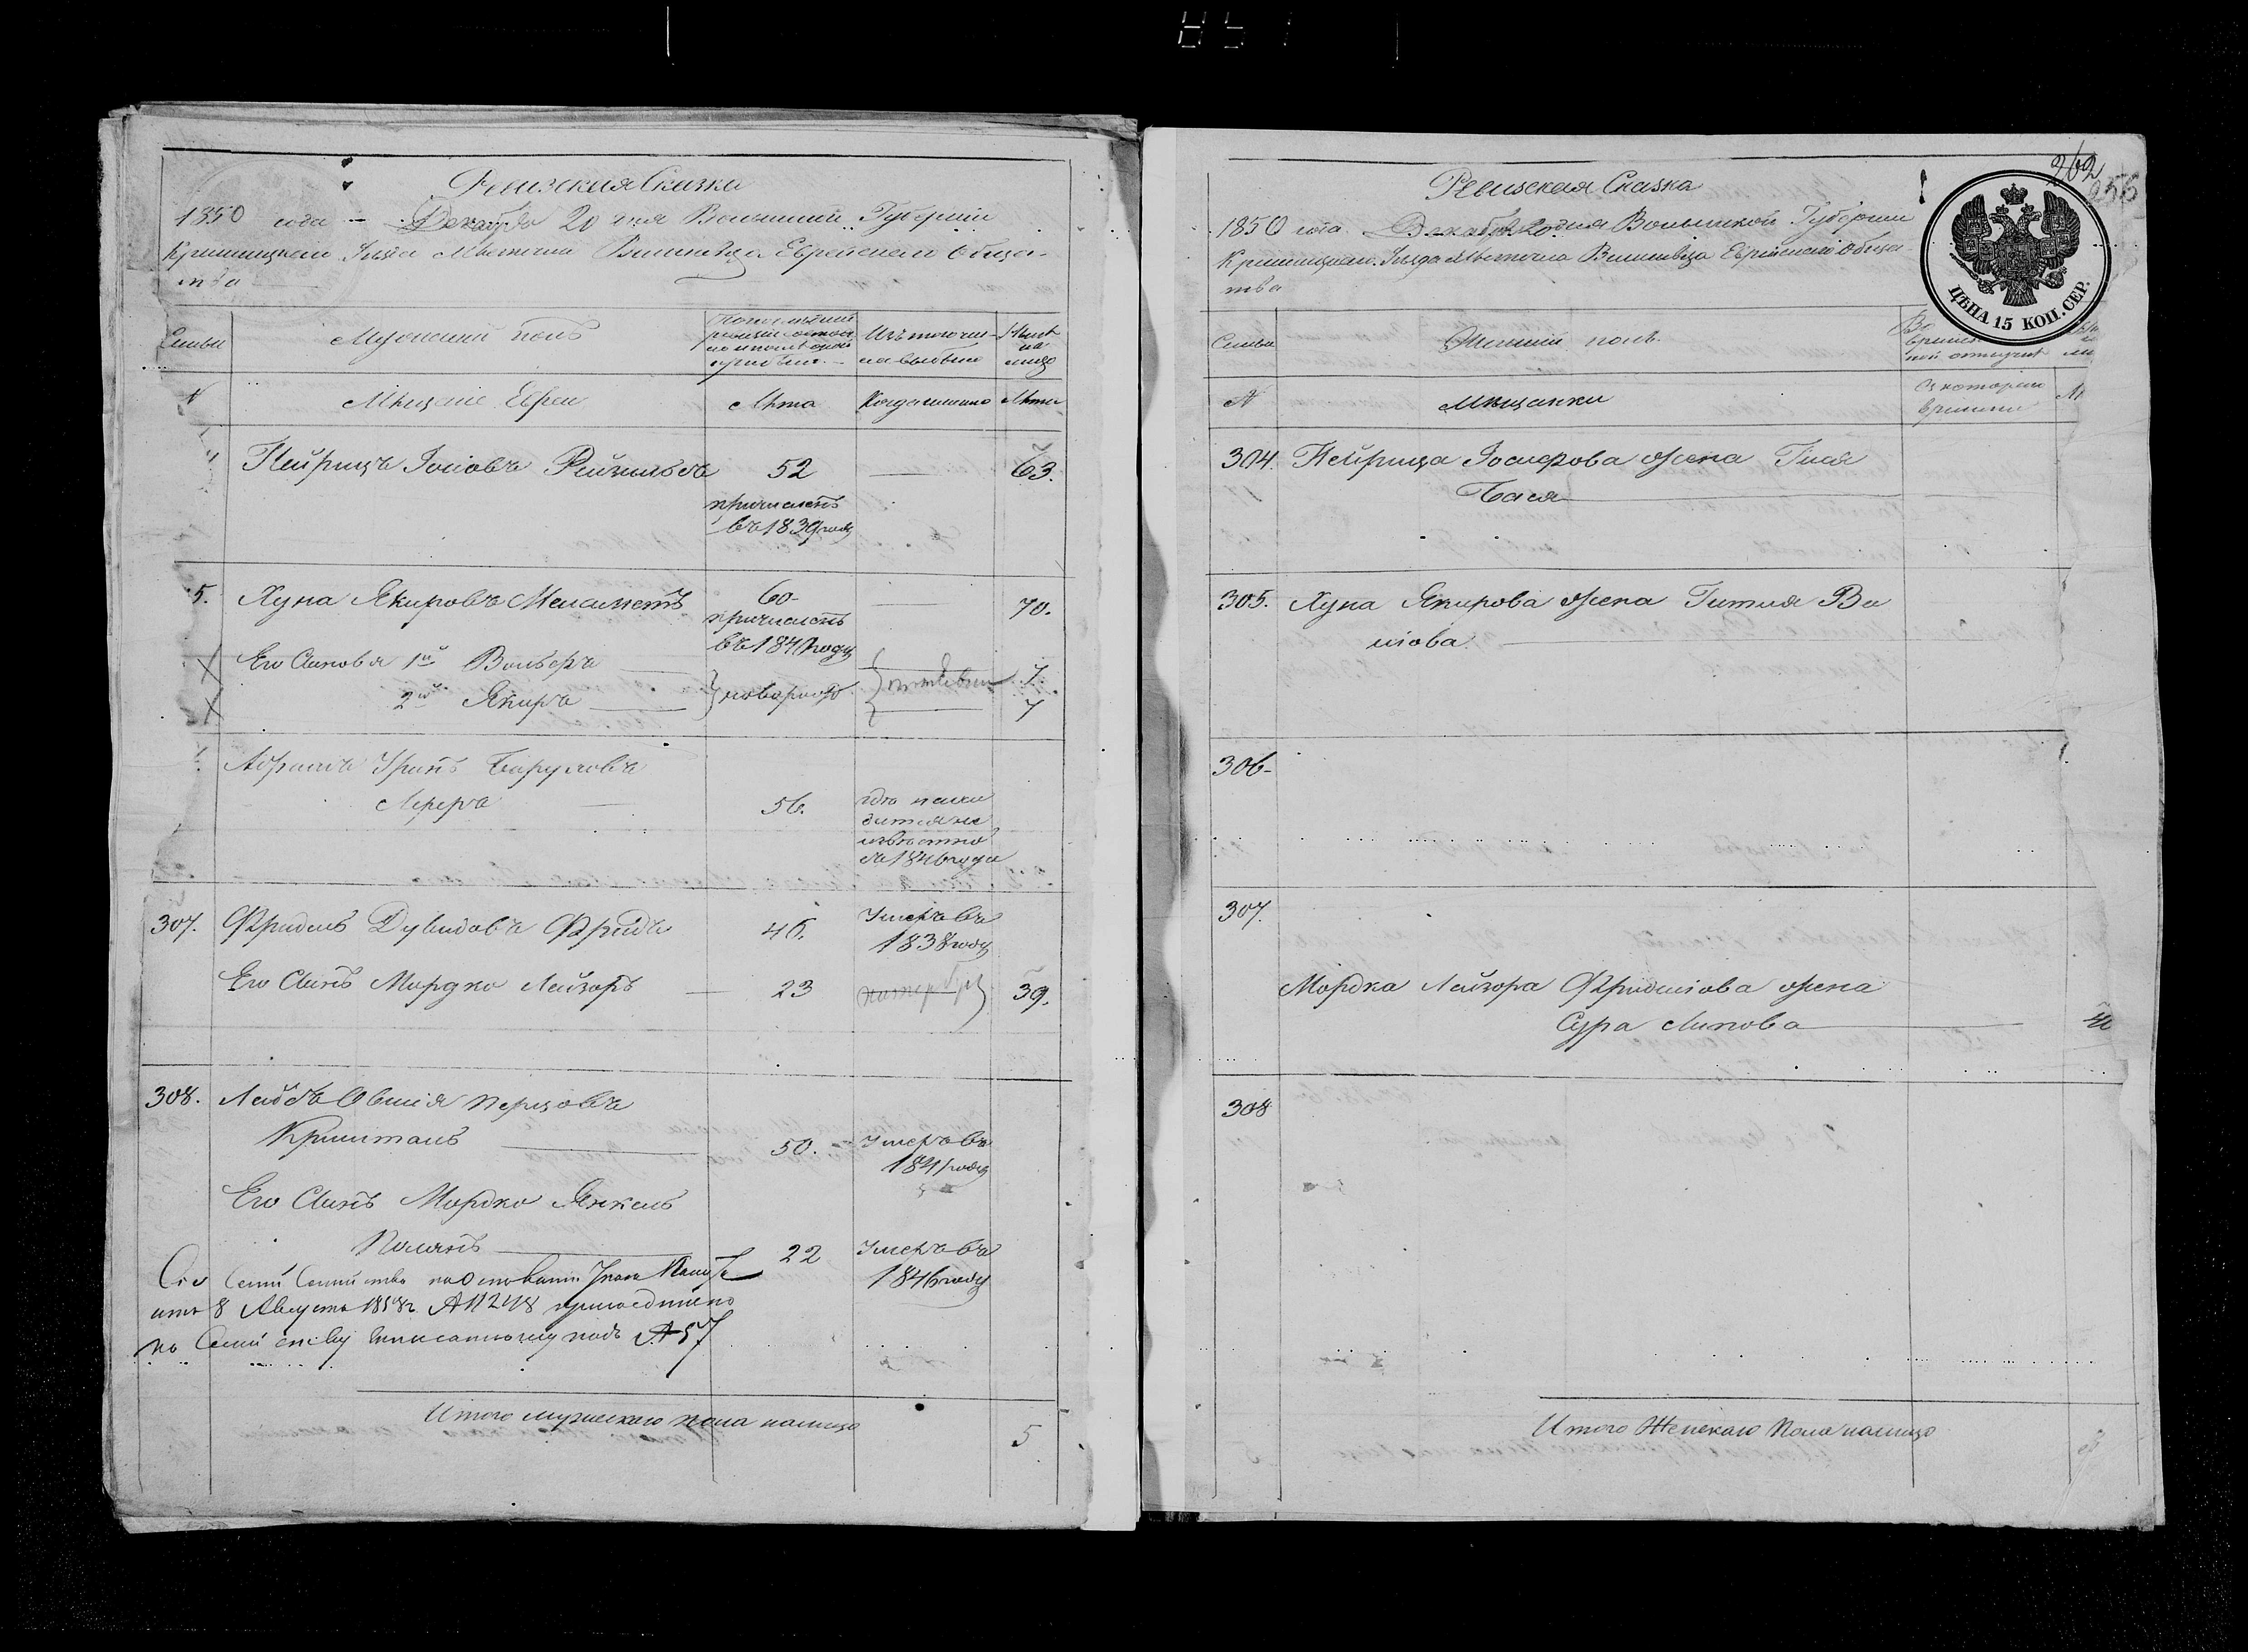 Ревизская Сказка
1850 года Декабря 20 дня Волынской Губернии
Кременецкого Уезда Местечка Вишневца Еврейского Общес-
тва
Семьи
Мужеский полъ
Изъ того чис-
ла выбыло
Ныне
на
лицо
№
Мещане Евреи
Лета
Когда именно
Лета
Пейрицъ Іосіовъ
52
63.
причисленъ
въ 1839 году
5.
Хуна Якировъ Меламетъ
60
70.
причисленъ
въ 1841 году
Его Сыновья 1й Вольферъ
7.
2й Якиръ
новорож
7
Абрамъ Уринъ Баруховъ
Лереръ
56.
где нахо
дится не
известно
съ 1846 года
307.
Фридель Дувидовъ Фридъ
46.
Умеръ въ
1838 году
Его Сынъ Мордко Лейзоръ
23
39.
308.
Лейбъ Овшія Перцовъ
Криштталь
50.
Умеръ въ
1841 году
Его Сынъ Мордко Янкель
22
Умеръ въ
1846 году
Сіе Семейство на основаніи Указа
отъ 8 Августа 1858 г № 11248 присоединено
къ Семейству писанному подъ № 57
Итого мужескаго пола налицо
5
262
256
Ревизская Сказка
1850 года Декабря 20 дня Волынской Губернии
Кременецкого Уезда Местечка Вишневца Еврейского Общес-
тва
ЦѢНА 15 КОП. СЕР.
Семьи
Женскій полъ
№
Мещанки
Съ котораго
времени
304.
Пейрица Іосифова жена Гися
Бася
305.
Хуна Якирова жена Гитля Во
лова
306
307.
Мордка Лейзора Фриделіова жена
Сура Липова
308
Итого Женскаго Пола налицо